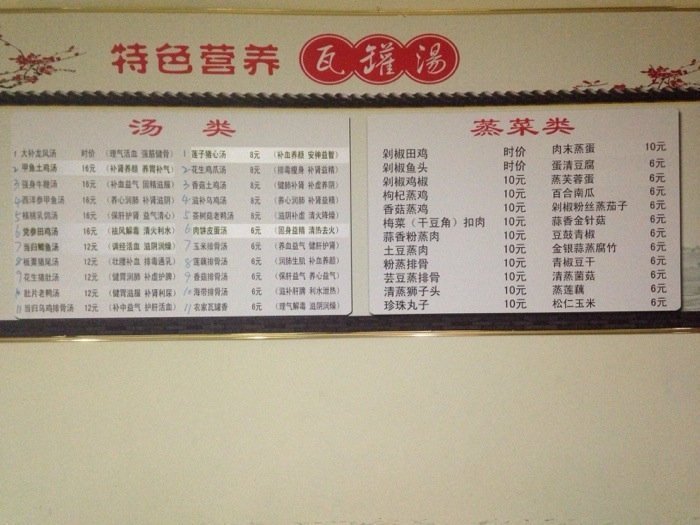 特色营养 瓦罐湯
汤 类
1 大补龙凤汤 时价 (理气活血 强筋健骨)
2 甲鱼土鸡汤 16元 (补肾养颜 养胃补气)
3 强身牛鞭汤 16元
4 西洋参甲鱼汤 16元 (养心润肺 补肾滋阴)
5 核桃乳鸽汤 16元 (保肝护肾 益气清心)
6 党参田鸡汤 16元 (祛风解毒 清火利水)
7 当归鲫鱼汤 12元 (调经活血 滋阴润燥)
8 板栗猪尾汤 12元 (壮腰补血 排毒通乳)
9 花生猪肚汤 12元 (健胃润肺 补虚护脾)
10 肚片老鸭汤 12元 (健胃滋服 补肾利尿)
11 当归乌鸡排骨汤 12元 (补中益气 护肝活血)
1 莲子猪心汤 8元 (补血养颜 安神益智)
2 花生鸡爪汤 8元 (排毒瘦身 补肾益精)
3 香菇土鸡汤 8元 (健肺补肾 补虚养阴)
4 滋补乌鸡汤 8元 (养心润肺 滋阴润燥)
5 茶树菇老鸭汤 8元 (滋阴补虚 清火降燥)
6 肉饼皮蛋汤 6元 (固身益精 清热去火)
7 玉米排骨汤 6元 (养血益气 健肝护肾)
8 莲藕排骨汤 6元 (润肺生肌 补血养颜)
9 香菇排骨汤 6元 (保肝益气 养心益气)
10 海带排骨汤 6元 (滋补肝脾 利水泄热)
11 农家瓦罐香 6元 (理气解毒 滋阴润燥)
蒸菜类
剁椒田鸡 时价
剁椒鱼头 时价
剁椒鸡椒 10元
枸杞蒸鸡 10元
香菇蒸鸡 10元
梅菜（干豆角）扣肉 10元
蒜香粉蒸肉 10元
土豆蒸肉 10元
粉蒸排骨 10元
芸豆蒸排骨 10元
清蒸狮子头 10元
珍珠丸子 10元
肉末蒸蛋 10元
蛋清豆腐 6元
蒸芙蓉蛋 6元
百合南瓜 6元
剁椒粉丝蒸茄子 6元
蒜香金针菇 6元
豆鼓青椒 6元
金银蒜蒸腐竹 6元
青椒豆干 6元
清蒸菌菇 6元
蒸莲藕 6元
松仁玉米 6元